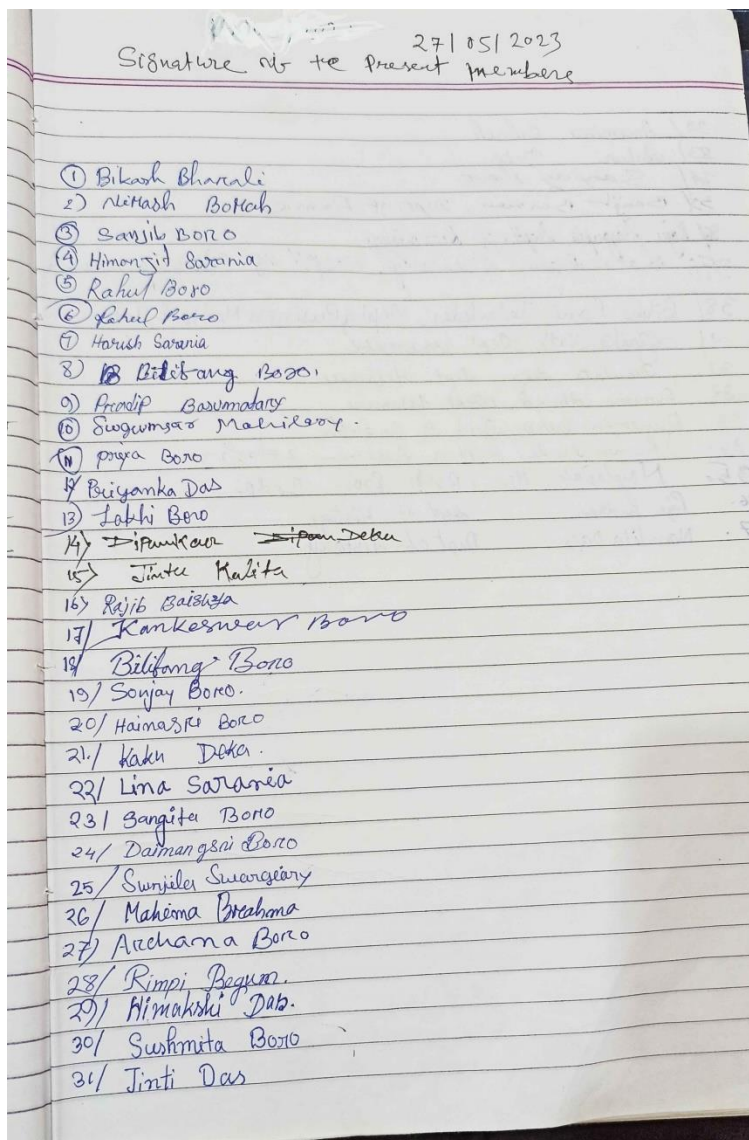 27/05/2023
Signature of the Present members
① Bikash Bharali
2) Nirmash Borah
③ Sanjib Boro
④ Himangjit Sarania
⑤ Rahul Boro
⑥ Rahul Boro
⑦ Harush Sarania
8) Bilifang Boro.
9) Pradip Basumatary
⑩ Swgwmsar Mahilary.
⑪ priya Boro
12/ Priyanka Das
13) Lakhi Boro
14) Dipankar Deka
15) Jintu Kalita
16) Rajib Baishya
17/ Kankeswar Boro
18/ Bilifang Boro
19/ Sonjay Boro.
20/ Haimasri Boro
21./ Kaku Deka.
22/ Lina Sarania
23/ Sangita Boro
24/ Daimangsri Boro
25/ Sunjila Swargiary
26/ Mahima Brahma
27) Archana Boro
28/ Rimpi Begum.
29)/ Himakshi Das.
30/ Sushmita Boro
31/ Jinti Das